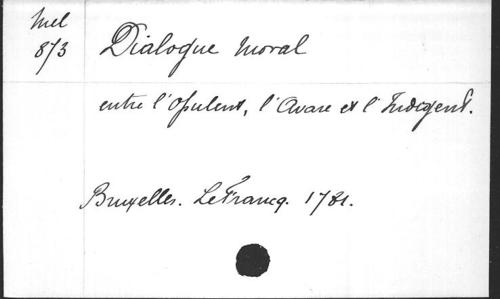 Mel
873
Dialogue moral
entre l'Opulent, l'Avare et l'Indigent.
Bruxelles. Le Francq. 1781.